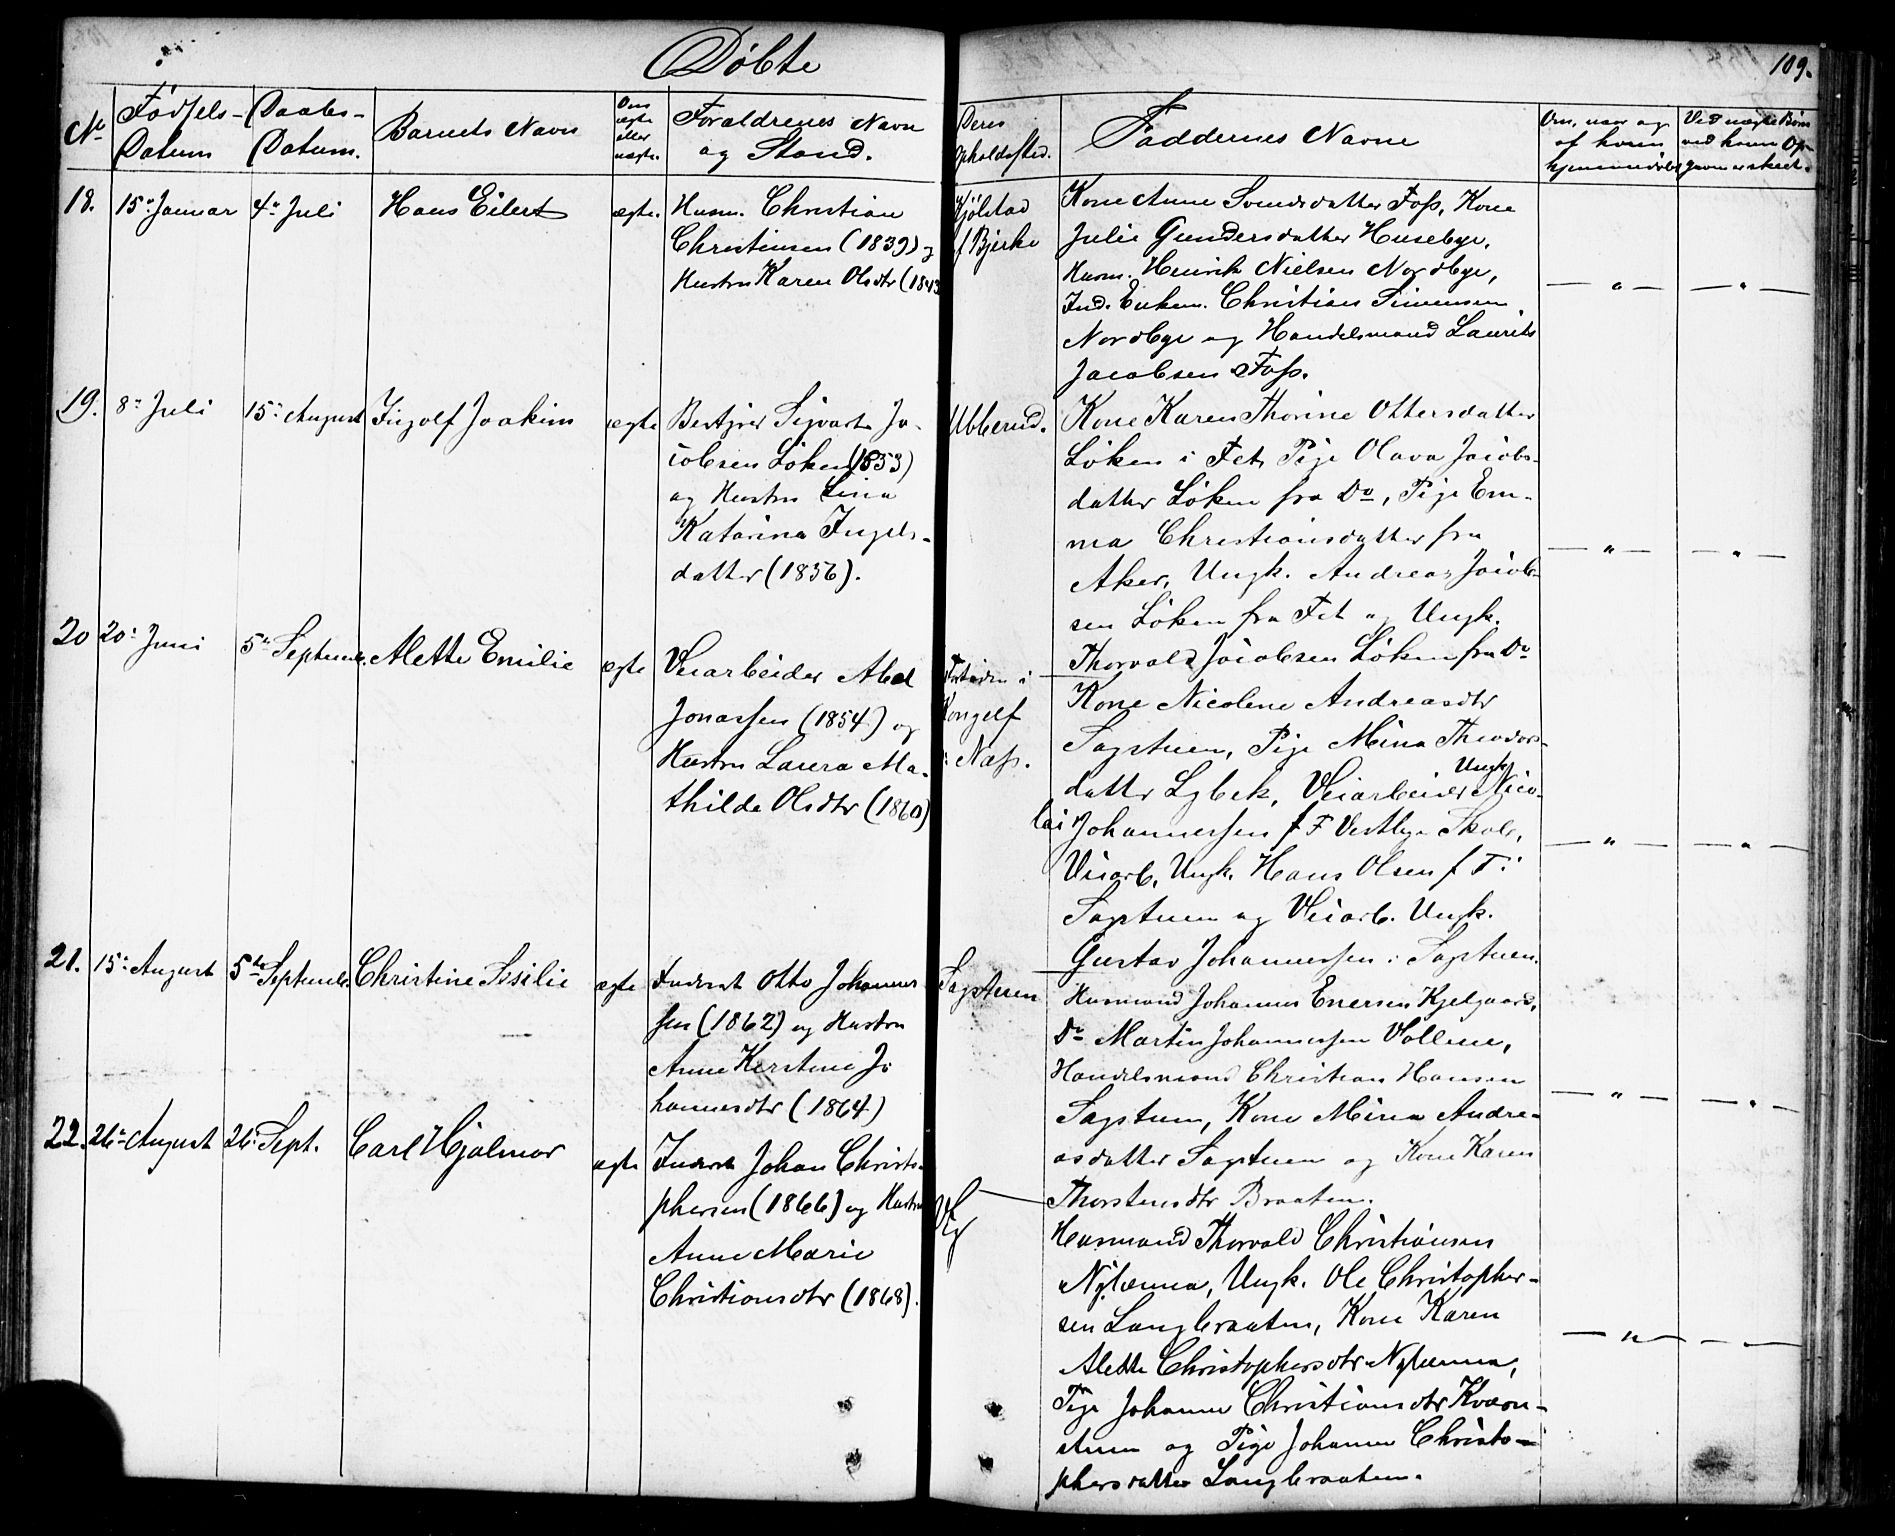 Döbte
109.
No Födsels-Datum Daabs-Datum. Barnets Navn Om ægte eller uægte. Forældrenes Navn og Stand. Deres Opholdssted. Faddernes Navne Om, naar og af hvem hjemmedöbt Ved uægte Börn ved hvem Opgaven er skeet.
18. 15de Januar 4de Juli Hans Eilert ægte.
Husm. Christian
Christiansen (1839) og
Hustru Karen Olsdtr (1843
Kjölstad
f Bjerke
Kone Anne Svendsdatter Foss, Kone
Julie Gundersdatter Husebye,
Husm. Henrik Nielsen Nordbye,
Ind. Enkem. Christian Simensen
Nordbye og Handelsmand Laurits
Jacobsen Foss.
— " — — " —
19. 8de Juli 15de August Ingolf Joakim ægte
Bestyrer Sigvart Ja-
cobsen Löken (1853)
og Hustru Lina
Katarina Ingels-
datter (1856).
Ubberud.
Kone Karen Thorine Ottersdatter
Löken i Fet, Pige Olava Jacobs-
datter Löken fra Do, Pige Em-
ma Christiansdatter fra
Aker, Ungk. Andreas Jacob-
sen Löken fra Fet og Ungk.
Thorvald Jacobsen Löken fra Do
— " — — " —
20 20de Juni 5te Septemb. Alette Emilie ægte
Veiarbeider Abel
Jonassen (1854) og
Hustru Laura Ma-
thilde Olsdtr (1860)
Fortiden i
Kongelf
i Næss.
Kone Nicolene Andreasdtr
Sagstuen, Pige Mina Theodors-
datter Lybek, Veiarbeider Ungk. Nico-
lai Johannessen f T Vestbye Skole,
Veiarb. Ungk. Hans Olsen f T.
Sagstuen og Veiarb. Ungk.
Gustav Johannessen i Sagstuen.
— " — — " —
21. 15de August 5te Septemb. Christine Sesilie ægte
Inderst Otto Johannes
sen (1862) og Hustru
Anne Kerstine Jo
hannesdtr (1864)
Sagstuen
Husmand Johannes Enersen Kjelgaard,
Do Martin Johannessen Vollene,
Handelsmand Christian Hansen
Sagstuen, Kone Mina Andre-
asdatter Sagstuen og Kone Karen
Thorstensdtr Braaten.
— " — — " —
22. 26de August 26de Sept. Carl Hjalmar ægte
Inderst Johan Christo-
phersen (1866) og Hustru
Anne Marie
Christiansdtr (1868).
Husmand Thorvald Christiansen
Nylænna, Ungk. Ole Christopher-
sen Langbraaten, Kone Karen
Alette Christophersdtr Nylænna,
Pige Johanne Christiansdtr Kværn-
stuen og Pige Johanne Christo-
phersdatter Langbraaten.
— " — — " —